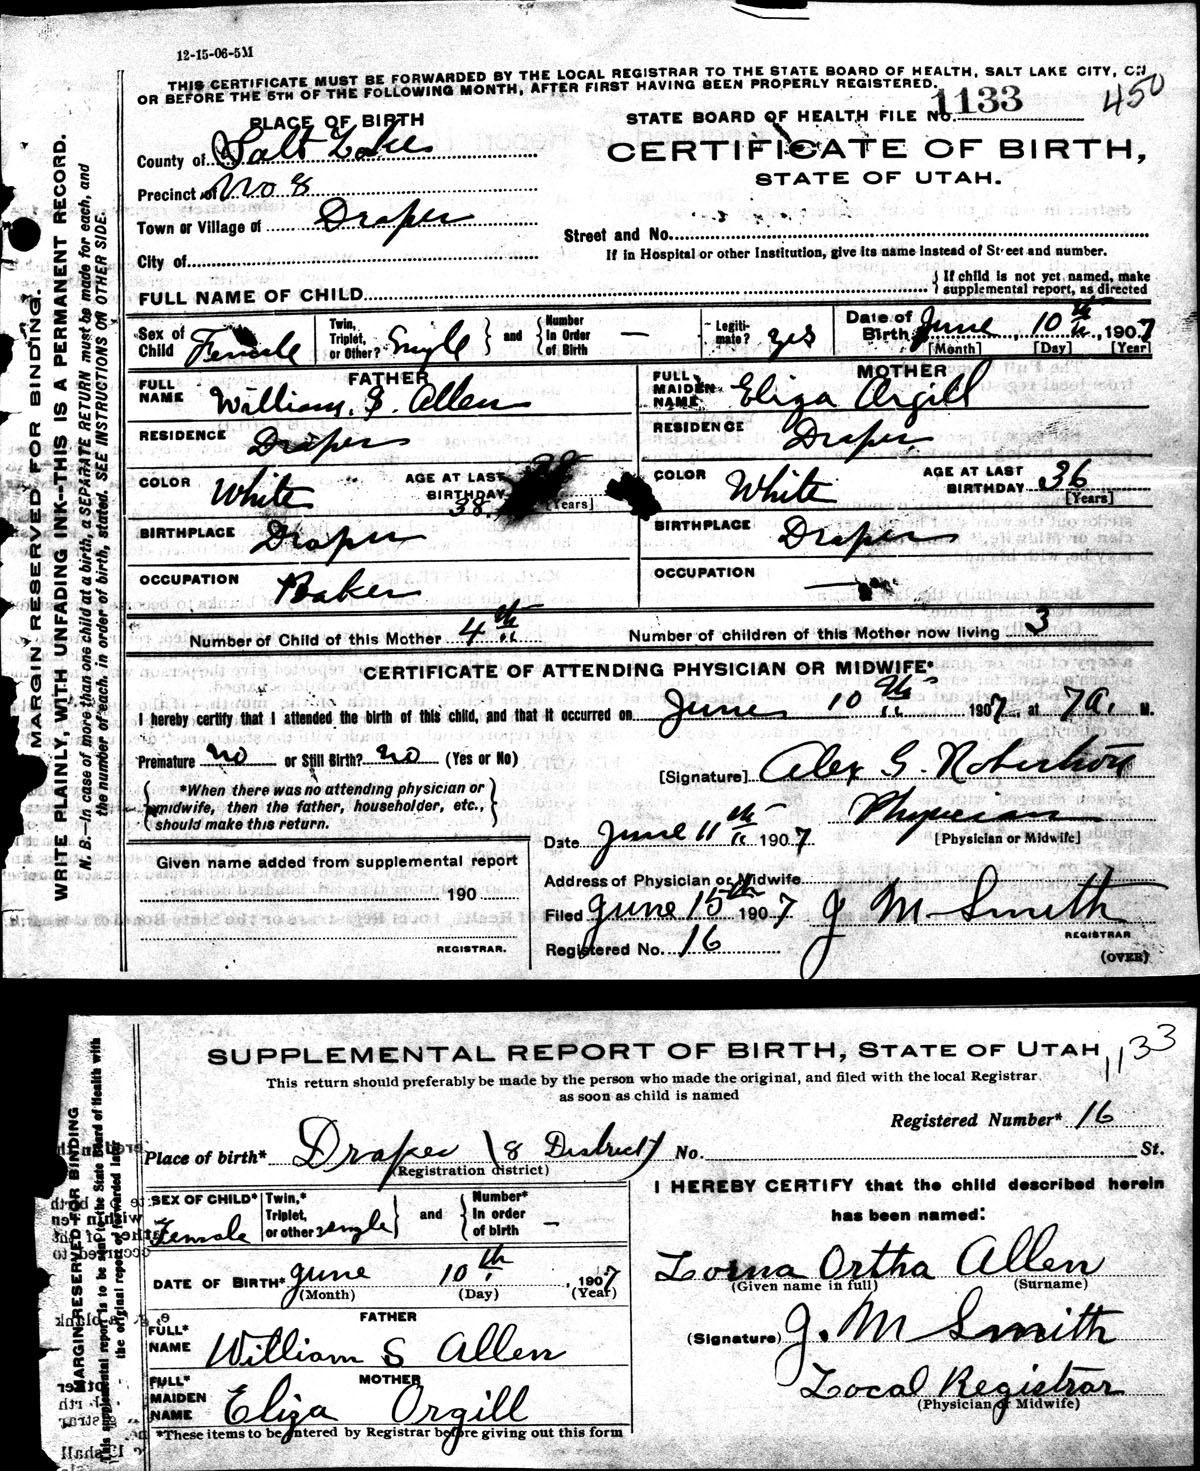 12-15-06-5M
THIS CERTIFICATE MUST BE FORWARDED BY THE LOCAL REGISTRAR TO THE STATE BOARD OF HEALTH, SALT LAKE CITY, ON
OR BEFORE THE 5TH OF THE FOLLOWING MONTH, AFTER FIRST HAVING BEEN PROPERLY REGISTERED.
450
PLACE OF BIRTH
STATE BOARD OF HEALTH FILE No. 1133
County of Salt Lake
CERTIFICATE OF BIRTH,
STATE OF UTAH.
Precinct of No 8
Town or Village of Draper
Street and No.
City of
If in Hospital or other Institution, give its name instead of Street and number.
FULL NAME OF CHILD
If child is not yet named, make
supplemental report, as directed
Sex of Child Female
Twin, Triplet, or Other? Single
and Number In Order of Birth —
Legitimate? yes
Date of Birth June 10th, 1907
[Month] [Day] [Year]
FATHER
FULL NAME William S. Allen
RESIDENCE Draper
COLOR White
AGE AT LAST BIRTHDAY 38 [Years]
BIRTHPLACE Draper
OCCUPATION Baker
MOTHER
FULL MAIDEN NAME Eliza Orgill
RESIDENCE Draper
COLOR White
AGE AT LAST BIRTHDAY 36 [Years]
BIRTHPLACE Draper
OCCUPATION —
Number of Child of this Mother 4th
Number of children of this Mother now living 3
CERTIFICATE OF ATTENDING PHYSICIAN OR MIDWIFE*
I hereby certify that I attended the birth of this child, and that it occurred on June 10th 1907, at 7 A. M.
Premature no or Still Birth? no (Yes or No)
[Signature] Alex G. Robertson
*When there was no attending physician or
midwife, then the father, householder, etc.,
should make this return.
Physician
[Physician or Midwife]
Date June 11th 1907
Given name added from supplemental report
190
REGISTRAR.
Address of Physician or Midwife
Filed June 15th 1907 J M Smith
REGISTRAR
Registered No. 16
(OVER)
MARGIN RESERVED FOR BINDING.
WRITE PLAINLY, WITH UNFADING INK—THIS IS A PERMANENT RECORD.
N. B.—In case of more than one child at a birth, a SEPARATE RETURN must be made for each, and
the number of each, in order of birth, stated. SEE INSTRUCTIONS ON OTHER SIDE.
SUPPLEMENTAL REPORT OF BIRTH, STATE OF UTAH
1133
This return should preferably be made by the person who made the original, and filed with the local Registrar
as soon as child is named
Registered Number* 16
Place of birth* Draper (8 District) No. St.
(Registration district)
SEX OF CHILD* Female
Twin,* Triplet, or other? single
and Number* In order of birth —
DATE OF BIRTH* June 10th, 1907
(Month) (Day) (Year)
FATHER
FULL* NAME William S Allen
MOTHER
FULL* MAIDEN NAME Eliza Orgill
*These items to be entered by Registrar before giving out this form
I HEREBY CERTIFY that the child described herein
has been named:
Lorna Ortha Allen
(Given name in full) (Surname)
(Signature) J. M Smith
Local Registrar
(Physician or Midwife)
MARGIN RESERVED FOR BINDING
This supplemental report is to be sent to the State Board of Health with
the original report of forwarded later